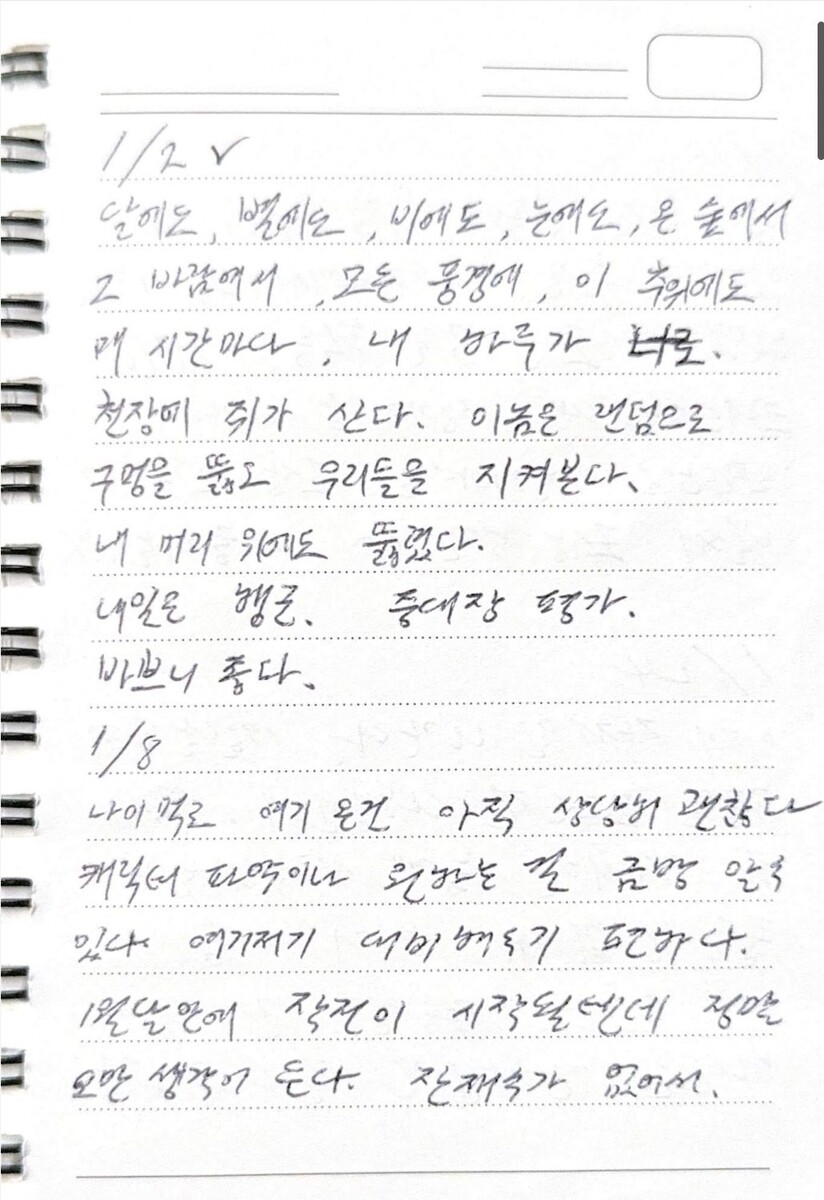 1/2 ✓
달에도, 별에도, 비에도, 눈에도, 온 숲에서
그 바람에서, 모든 풍경에, 이 추위에도
매 시간마다, 내 하루가
천장에 쥐가 산다. 이놈은 랜덤으로
구멍을 뚫고 우리들을 지켜본다.
내 머리 위에도 뚫렸다.
내일은 행군. 중대장 평가.
바쁘니 좋다.
1/8
나이먹고 여기 온건 아직 상당히 괜찮다
캐릭터 파악이나 원하는 걸 금방 알 수
있다. 여기저기 대비해두기 편하다.
1월달 안에 작전이 시작될텐데 정말
오만 생각이 든다. 잔재주가 없어서.